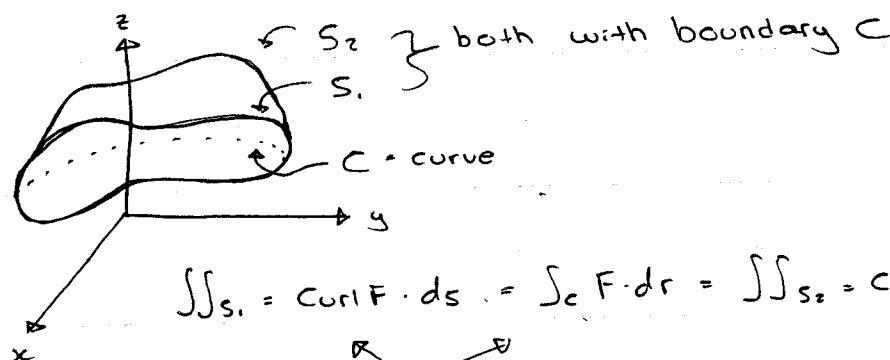 z
S₂ } both with boundary C
S₁
C = curve
y
∫∫ₛ₁ = Curl F · ds = ∫c F · dr = ∫∫ₛ₂ = C
x